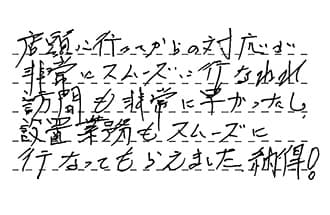 店頭に行ってからの対応が
非常にスムーズに行なわれ
訪問も非常に早かったし、
設置業務もスムーズに
行なってもらえました、納得!